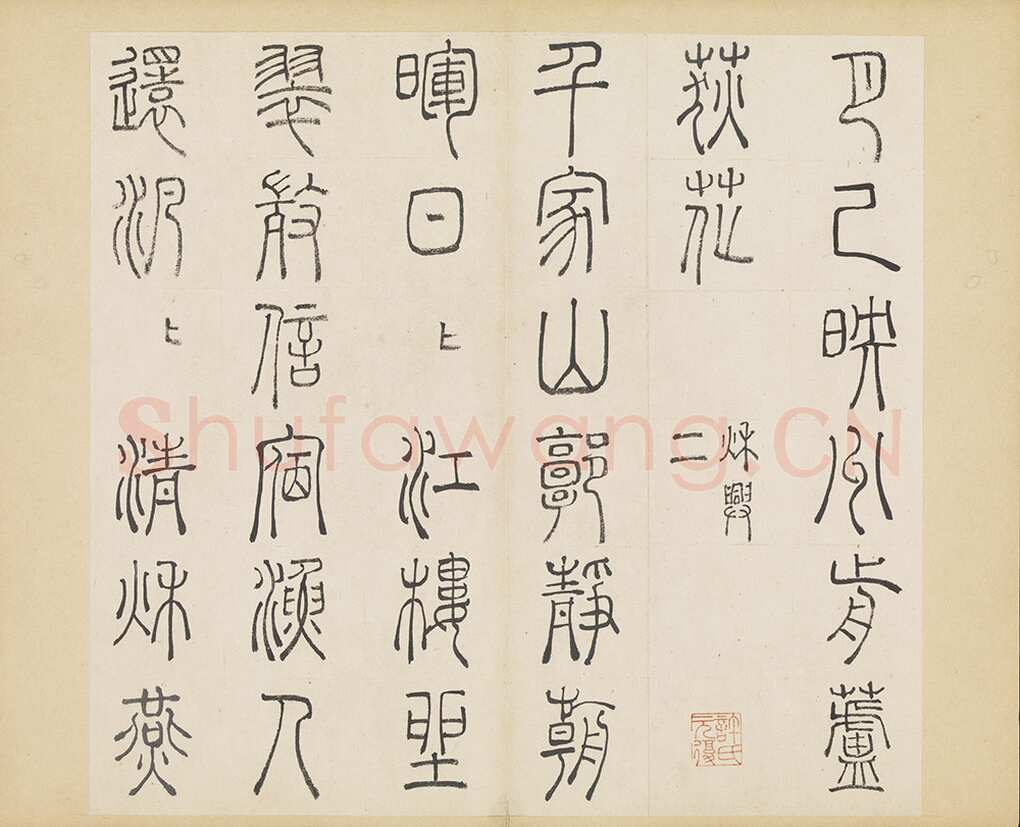 月已映州前蘆
荻花
秋興
二
千家山郭靜朝
暉日〻江樓坐
翠微信宿漁人
還汎〻清秋燕
許氏元復
Shufawang.CN